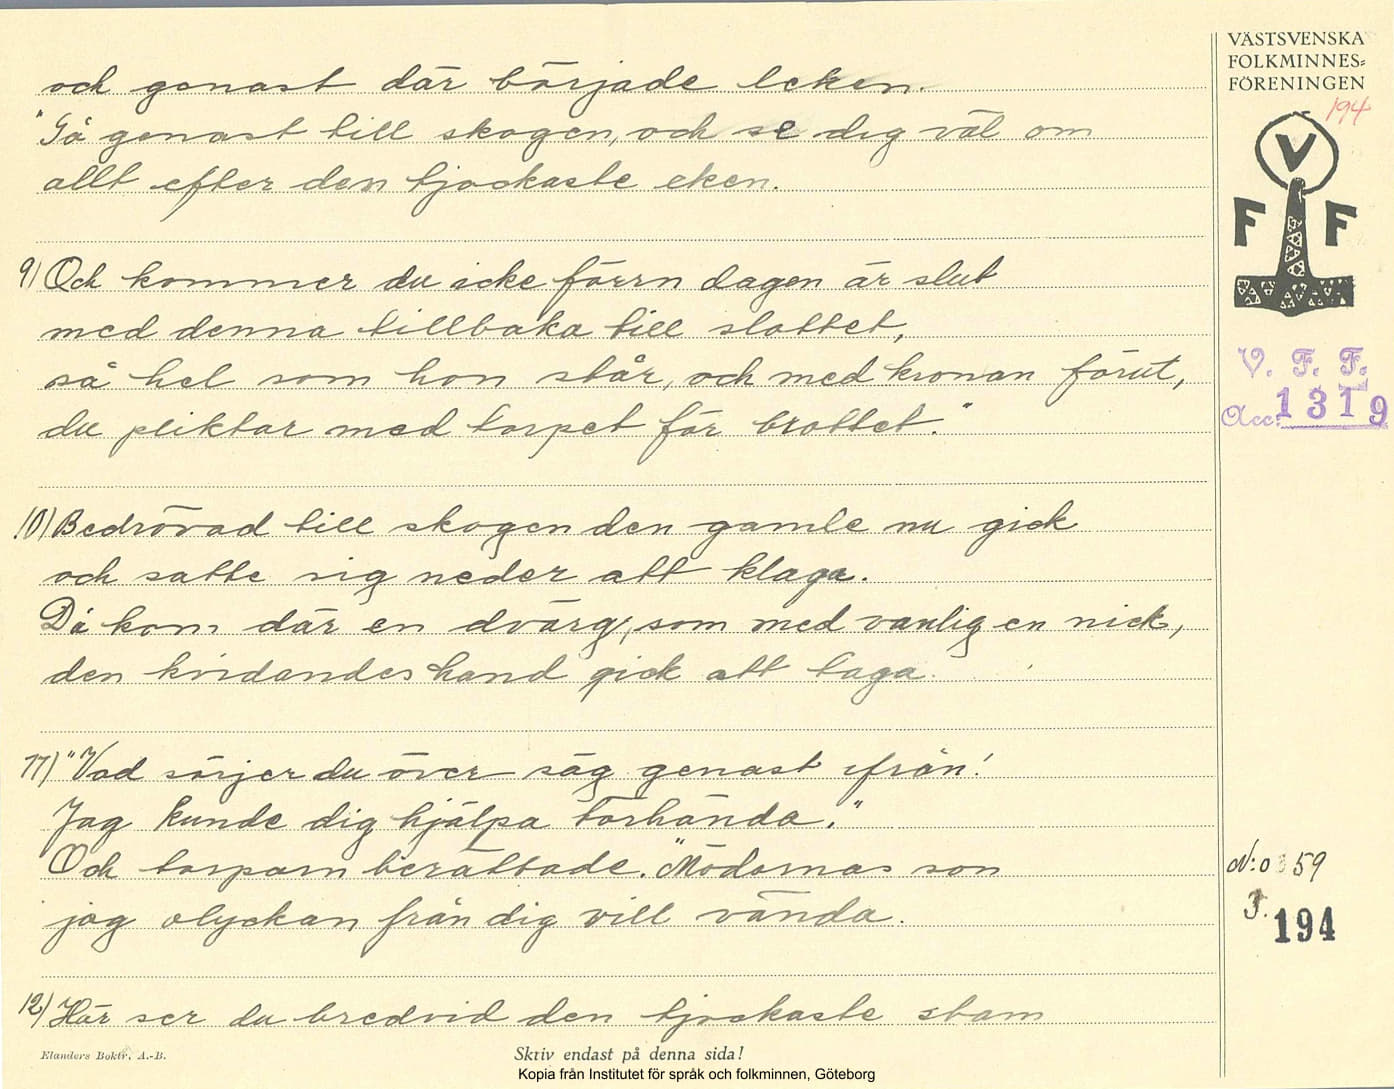 och genast där började leken.
"Gå genast till skogen, och se dig väl om
allt efter den tjockaste eken.
9) Och kommer du icke förrn dagen är slut
med denna tillbaka till slottet,
så hel som hon står, och med kronan förut,
du pliktar med torpet för brottet."
10) Bedrövad till skogen den gamle nu gick
och satte sig neder att klaga.
Då kom där en dvärg, som med vanlig en nick,
den kvidandes hand gick att taga.
11) "Vad sörjer du över säg genast ifrån!
Jag kunde dig hjälpa torhända."
Och torparn berättade. "Mödornas son
jag olyckan från dig vill vända.
12) Här ser du bredvid den tjockaste stam
VÄSTSVENSKA
FOLKMINNES=
FÖRENINGEN
194
V
F F
V. F. F.
Acc: 1319
N:o 59
3. 194
Elanders Boktr. A.-B.
Skriv endast på denna sida!
Kopia från Institutet för språk och folkminnen, Göteborg